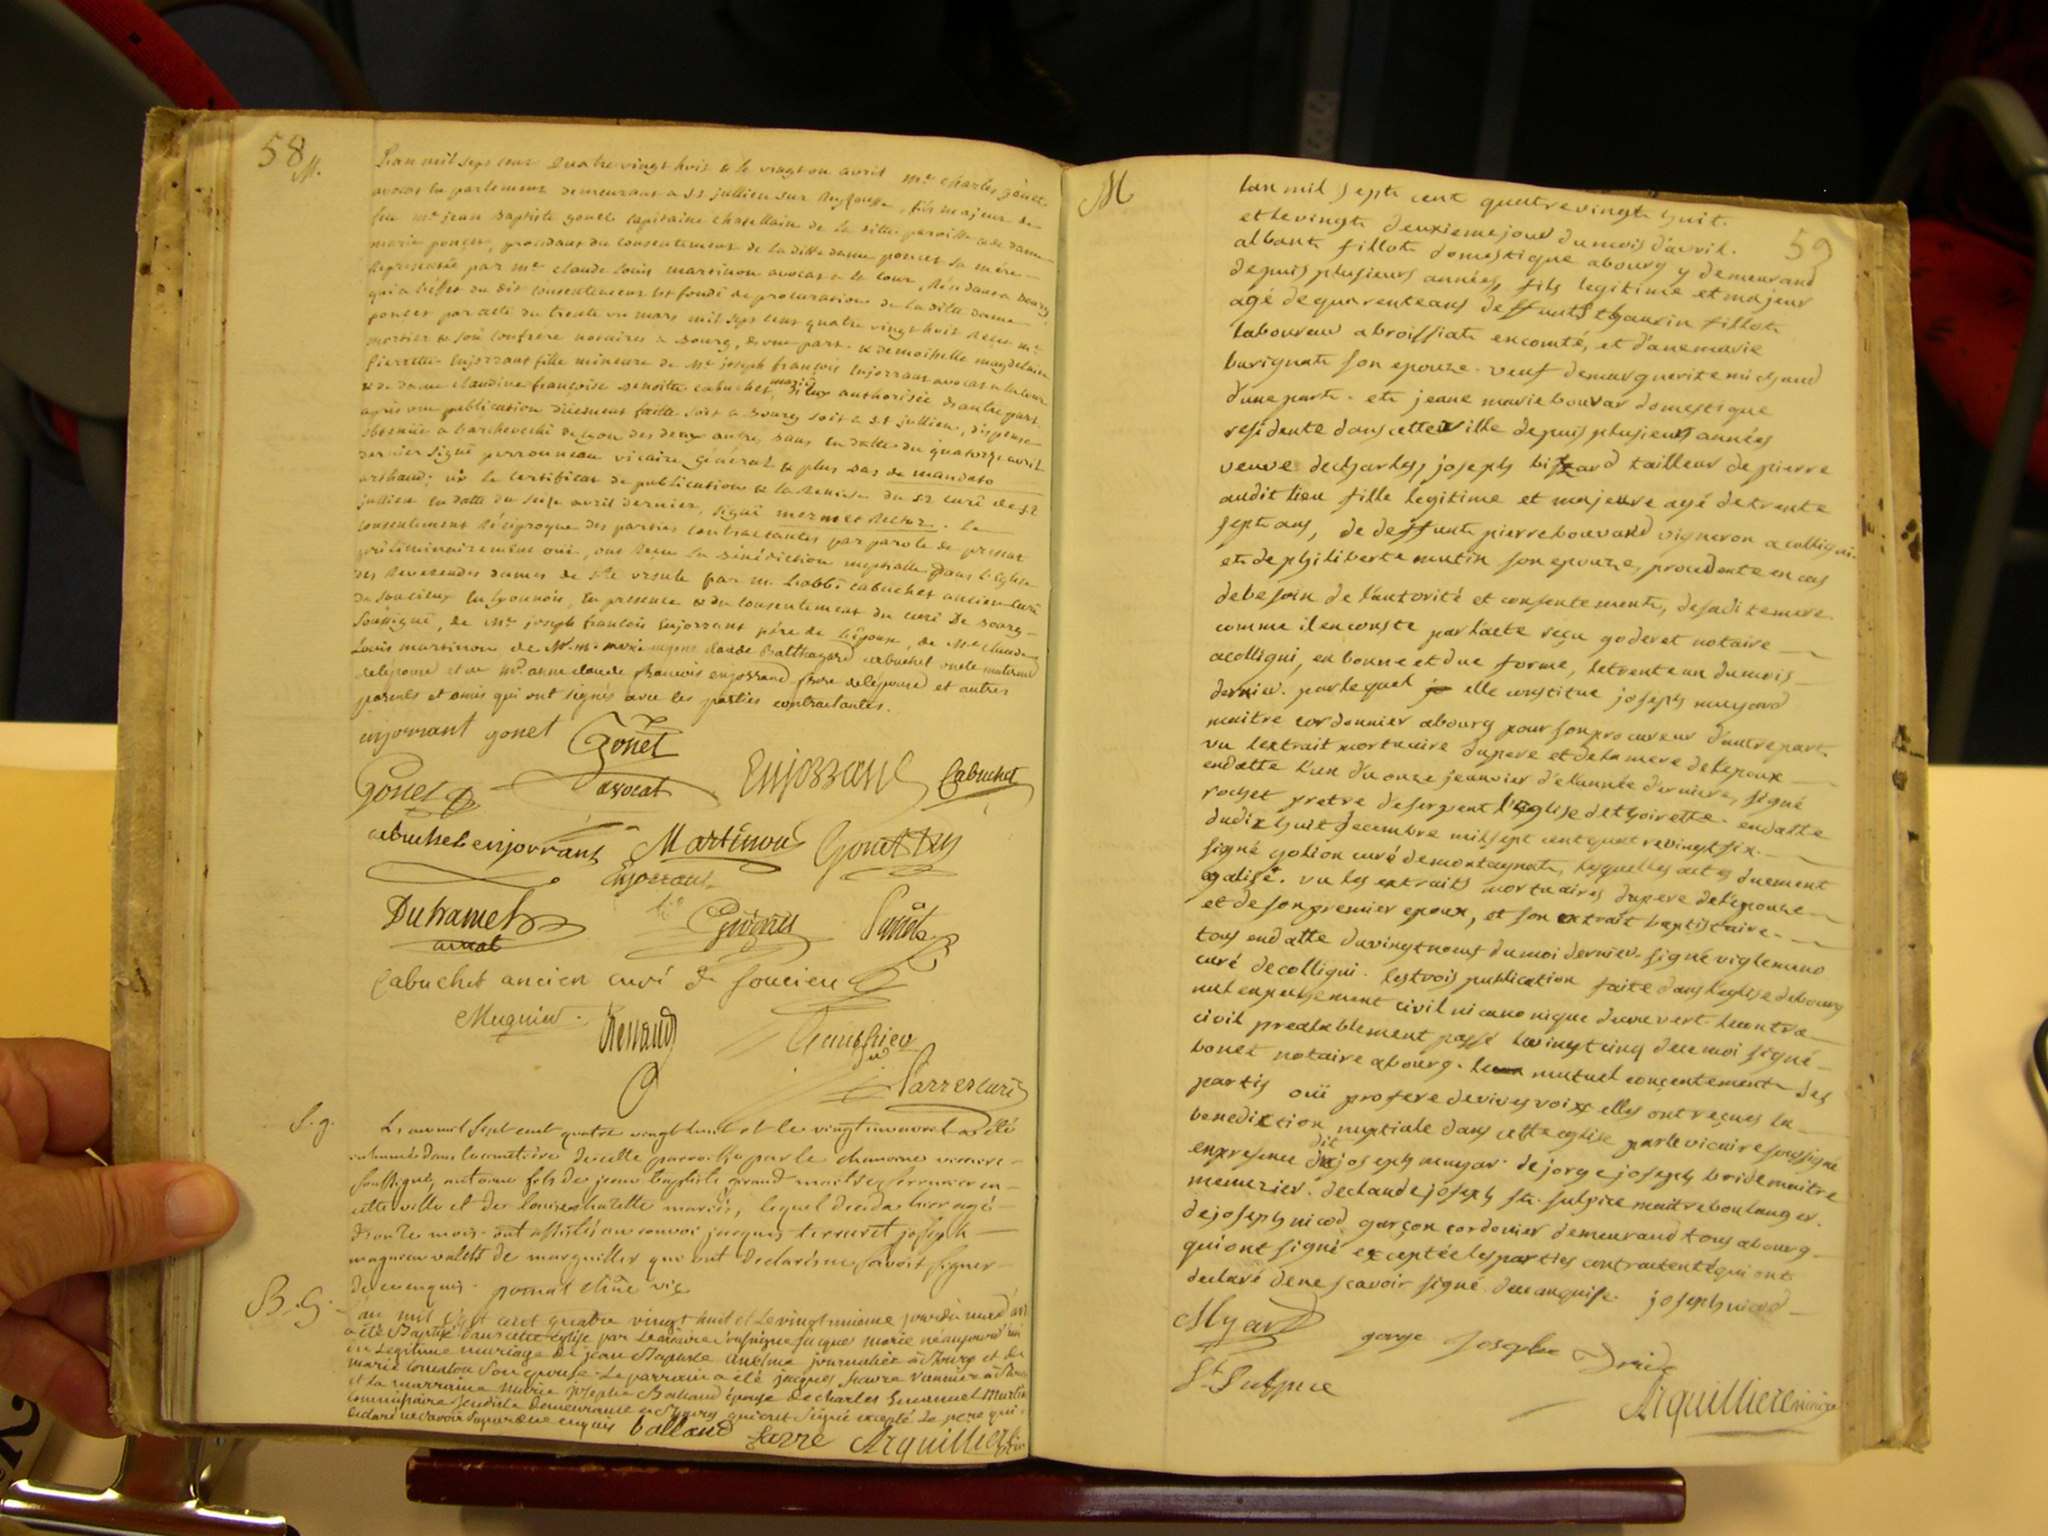 58
M.
L'an mil sept cent quatre vingt huit & le vingt un avril mre charles gonet
avocat en parlement demeurant a st jullien sur Reyssouse, fils majeur de
feu mre jean Baptiste gonet capitaine chatellain de la ditte paroisse & de dame
marie poncet, procedant du consentement de la ditte dame poncet sa mère
Représentée par mre claude louis martinon avocat a la cour, Résidant a Bourg,
qui a l'effet du dit consentement est fondé de procuration de la ditte dame
poncet par acte du trente un mars mil sept cent quatre vingt huit Reçu mre
morier & son confrère notaires a Bourg, d'une part. & demoiselle magdelaine
pierrette Enjorrant fille mineure de Mre joseph françois Enjorrant avocat a la cour
& de dame claudine françoise Benoitte cabuchet, mariés d'eux authorisée d'autre part.
après une publication düement faitte soit a Bourg soit a st jullien, dispense
obtenüe a l'archeveché de lyon des deux autres bans en datte du quatorze avril
dernier signé perronneau vicaire général & plus bas de mandato
arthaud; vû le certificat de publication & la Remise du sr curé de st
jullien en datte du seize avril dernier, signé mermet Rector. le
consentement Réciproque des parties contractantes par parole de present
préliminairement oui, ont Reçu la Bénédiction nuptialle dans l'église
des Reverendes dames de ste ursule par m. l'abbé cabuchet ancien curé
de soucieux en lyonnois, en presence & du consentement du curé De Bourg
soussigné, de Mre joseph françois Enjorrant père de l'épouse, de Mre claude
Louis martinon de Mr. claude Balthazard cabuchet oncle maternel
de l'épouse et de mr anne claude françois enjorrand frere de l'epouse et autres
parents et amis qui ont signés avec les parties contractantes.
enjorrant gonet Gonet
Gonet avocat Enjorrant Cabuchet
cabuchet enjorrant Martinon Gonet
Enjorrant
Duhamel
avocat
Cabuchet ancien curé de soucieu
Muguier Renaud
curé
S. g.
L'an mil sept cent quatre vingt huit et le vingt un avril a été
inhumé dans le cimetiere de cette parroisse par le chanoine vicaire
soussigné, antoine fils de jean baptiste giraud maitre serrurier en
cette ville et de louise chatelle mariés, lequel deceda hier agé
d'onze mois. ont assistés au convoi jacques terraret joseph
magnien valets de marguillier qui ont declarés ne savoir signer
de ce enquis. vic
B. G.
L'an mil sept cent quatre vingt huit et Le vingt unieme jour du mois d'avril
a été Baptisé dans cette église par Le vicaire soussigné jacque marie né aujourd'hui
du Legitime mariage de jean Baptiste Anselme journalier a Bourg et de
marie son epouse. Le parrain a été jacques favre vannier a Bourg
et la marraine marie josephe Balland épouse de charles Emanuel Martin
commissaire demeurant a Bourg qui ont signé excepté Le pere qui a
declaré ne savoir signer de ce enquis balland favre Arquilliere
M
59
L'an mil septe cent quatre vingte huit.
et le vingte deuxieme jour du mois d'avril.
albant fillote domestique abourg y demeurand
depuis plusieurs années, fils legitime et majeur
agé de quarente ans de deffunts thaurin fillote
laboureur abroissiate encomté, et d'anemarie
burignate son epouze. veuf de marguerite michaud
d'une parte. ete jeane marie bouvar domestique
residente dans cette ville depuis plusieurs années
veuve de charles joseph bizzard tailleur de pierre
audit lieu fille legitime et majeure agé de trente
septe ans, de deffunte pierre bouvard vigneron a colligni.
ete de philiberte mutin son epouze, procedente en cas
de besoin de l'autorité et consentemente, de sadite mere.
comme il en conste par l'acte reçu goderet notaire
acolligni, en bonne et due forme, le trente un du mois
dernier. par lequel elle constitue joseph mugard
maitre cordonnier abourg pour son procureur d'autre part.
vu l'extrait mortuaire du pere et de la mere de l'epoux
en datte l'un du onze jeanvier de l'année derniere, signé
rochet pretre deservent l'eglise de thoirette. en datte
du dix huit decembre mil sept cent quatrevingt six.
signé golion curé de montagnate, lesquelles actes duement
galisé. vu les extraits mortuaires du pere de l'epouze
et de son premier epoux, et son extrait baptistaire
tous en datte du vingt neuf du moi dernier. signé viglemeno
curé de colligni. les trois publication faite dans l'eglise de bourg
nul enpechement civil ni canonique decouvert. le contra
civil prealablement passé le vingt cinq de ce moi signé
bonet notaire abourg. le mutuel conçentemente des
partis oüi profere de vives voix elles ont reçues la
benediction nuptiale dans cette eglise par le vicaire soussigné
en presence dudit joseph mugar. de jorge joseph bride maitre
menuzier. de claude joseph st. sulpice maitre boulanger.
de joseph nicod garçon cordonier demeurand tous abourg
qui ont signé exceptée les parties contractente qui ont
declaré de ne scavoir signé de ce enquise. joseph nicod
Mgard gorge Joseph Bride
St Sulpice Arquilliere vicaire